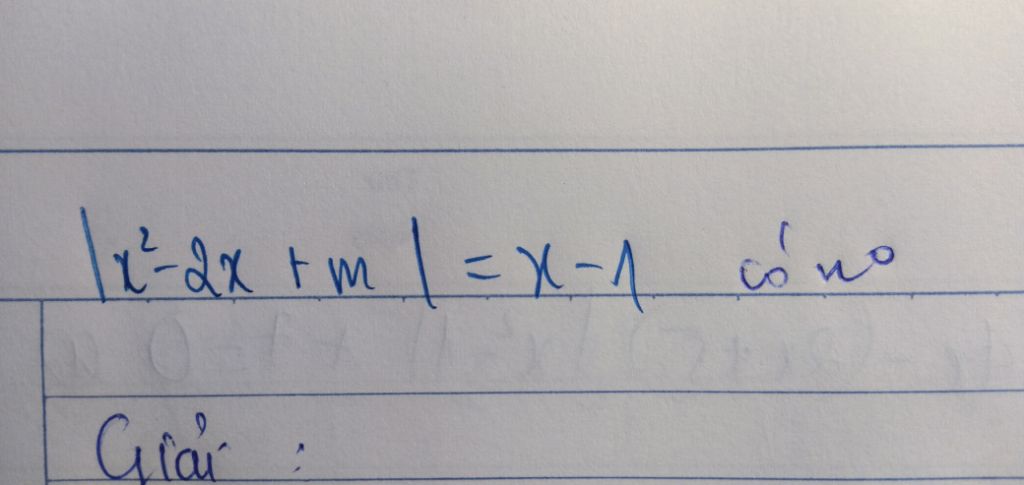 |x²-2x + m| = x - 1 có no
Giải :